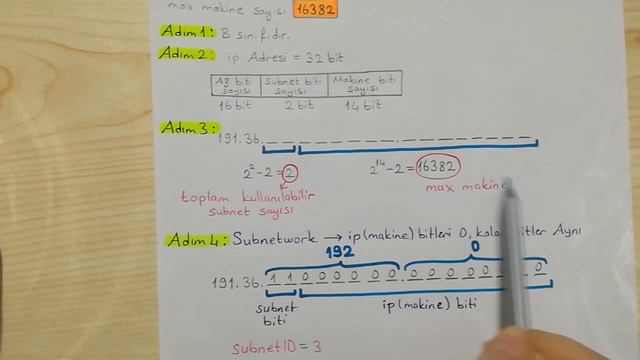 max makine sayısı 16382
Adım 1: B sınıfıdır.
Adım 2: ip Adresi = 32 bit
Ağ biti sayısı Subnet biti sayısı Makine biti sayısı
16 bit 2 bit 14 bit
Adım 3:
191.36. _ _ _ _ _ _ _ _ . _ _ _ _ _ _ _ _
2² - 2 = 2 2¹⁴ - 2 = 16382
toplam kullanılabilir subnet sayısı max makine
Adım 4: Subnetwork → ip(makine) bitleri 0, bitler Aynı
192 0
191.36. 1 1 0 0 0 0 0 0 . 0 0 0 0 0 0
subnet biti ip(makine) biti
subnetID = 3